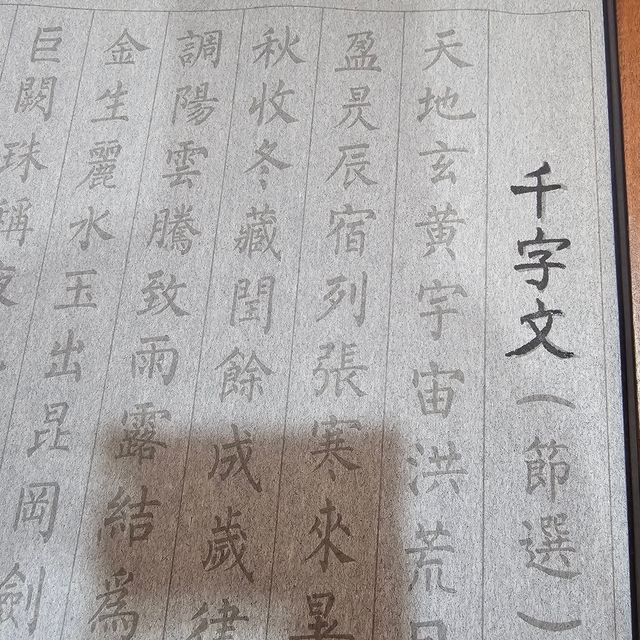 千字文(節選)
天地玄黄宇宙洪荒
盈昃辰宿列張寒來暑
秋收冬藏閏餘成歲律
調陽雲騰致雨露結爲
金生麗水玉出昆岡劍
巨闕珠稱夜